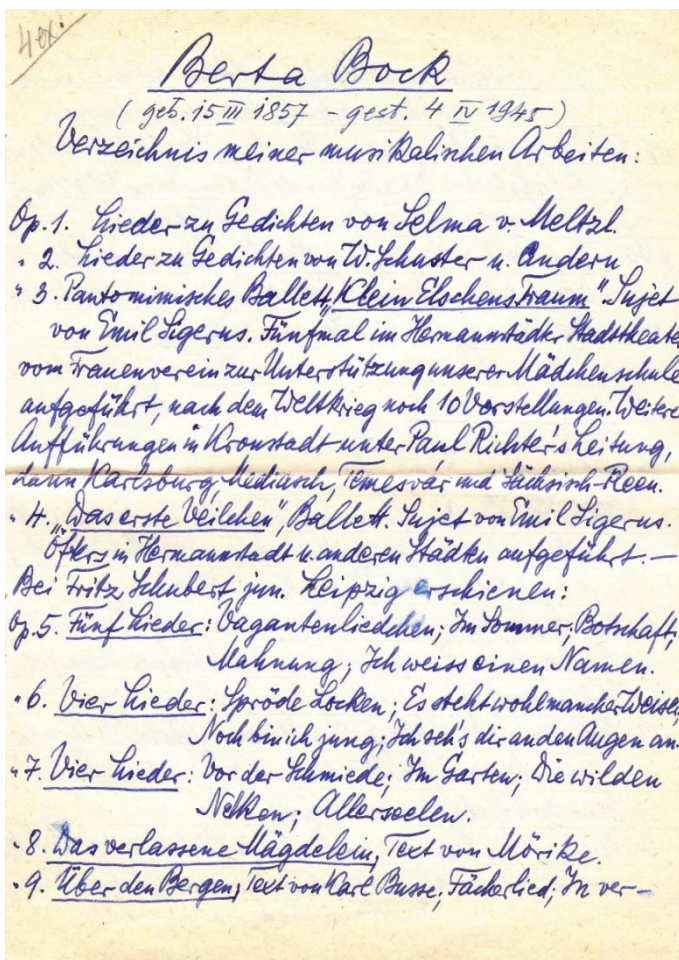 4 ex.
Berta Bock
(geb. 15 III 1857 - gest. 4 IV 1945)
Verzeichnis meiner musikalischen Arbeiten:
Op. 1. Lieder zu Gedichten von Selma v. Meltzl.
" 2. Lieder zu Gedichten von W. Schuster u. Andern
" 3. Pantomimisches Ballett „Klein Elschens Traum". Sujet
von Emil Sigerus. Fünfmal im Hermannstädter Stadttheater
vom Frauenverein zur Unterstützung unserer Mädchenschule
aufgeführt, nach dem Weltkrieg noch 10 Vorstellungen. Weitere
Aufführungen in Kronstadt unter Paul Richter's Leitung,
dann Karlsburg, Mediasch, Temesvár und Sächsisch-Reen.
" 4. „Das erste Veilchen", Ballett. Sujet von Emil Sigerus.
Öfters in Hermannstadt u. anderen Städten aufgeführt. —
Bei Fritz Schubert jun. Leipzig erschienen:
Op. 5. Fünf Lieder: Vagantenliedchen; Im Sommer; Botschaft;
Mahnung; Ich weiss einen Namen.
" 6. Vier Lieder: Spröde Locken; Es steht wohl mancher Weiser;
Noch bin ich jung; Ich seh's dir an den Augen an.
" 7. Vier Lieder: Vor der Schmiede; Im Garten; Die wilden
Nelken; Allerseelen.
" 8. Das verlassene Mägdelein, Text von Mörike.
" 9. Über den Bergen, Text von Karl Busse; Fächerlied; In ver-